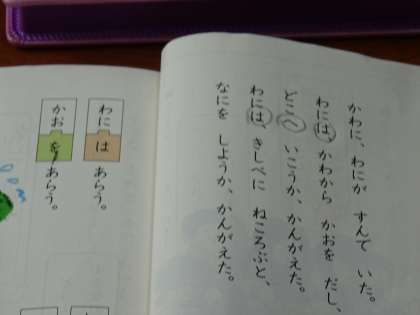 かわに、わにが すんで いた。
わには、かわから かおを だし、
どこへ いこうか、かんがえた。
わには、きしべに ねころぶと、
なにを しようか、かんがえた。
わに は あらう。
かお を あらう。